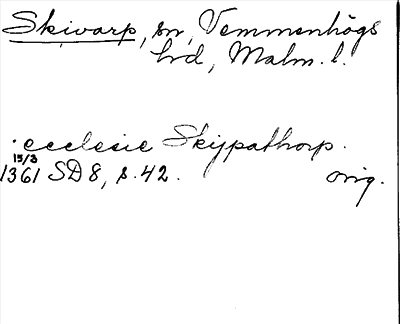 Skivarp, sn, Vemmenhögs
hd, Malm. l.
ecclesie Skijpathorp.
15/3
1361 SD 8, s. 42. orig.